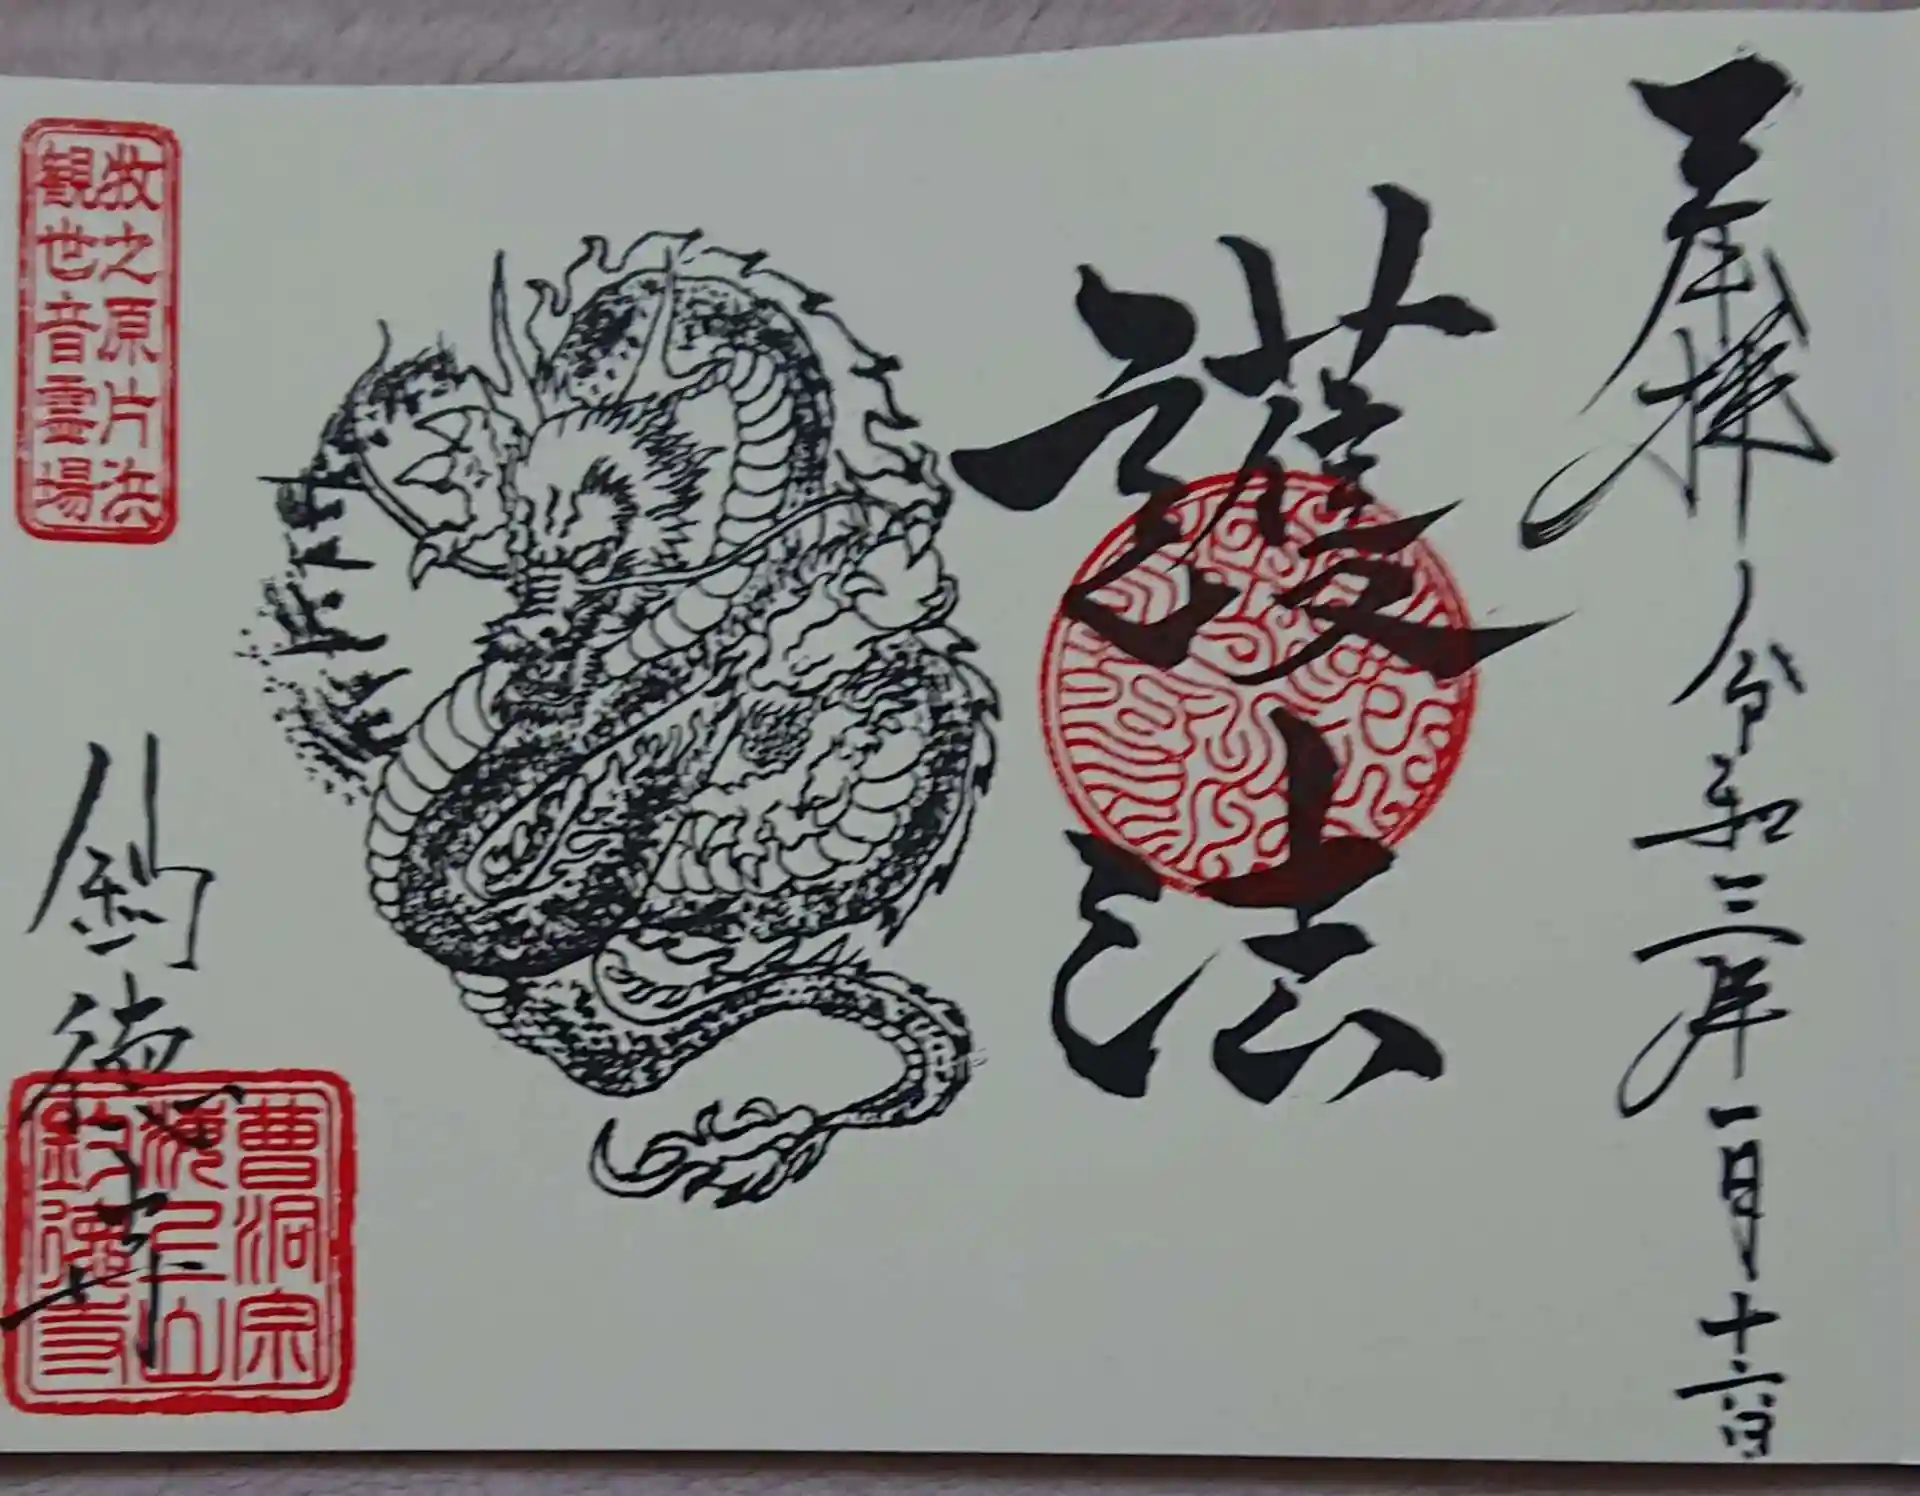 奉拝 令和三年一月十六日
護法
牧之原片浜
観世音霊場
釣徳寺
曹洞宗
釣徳寺